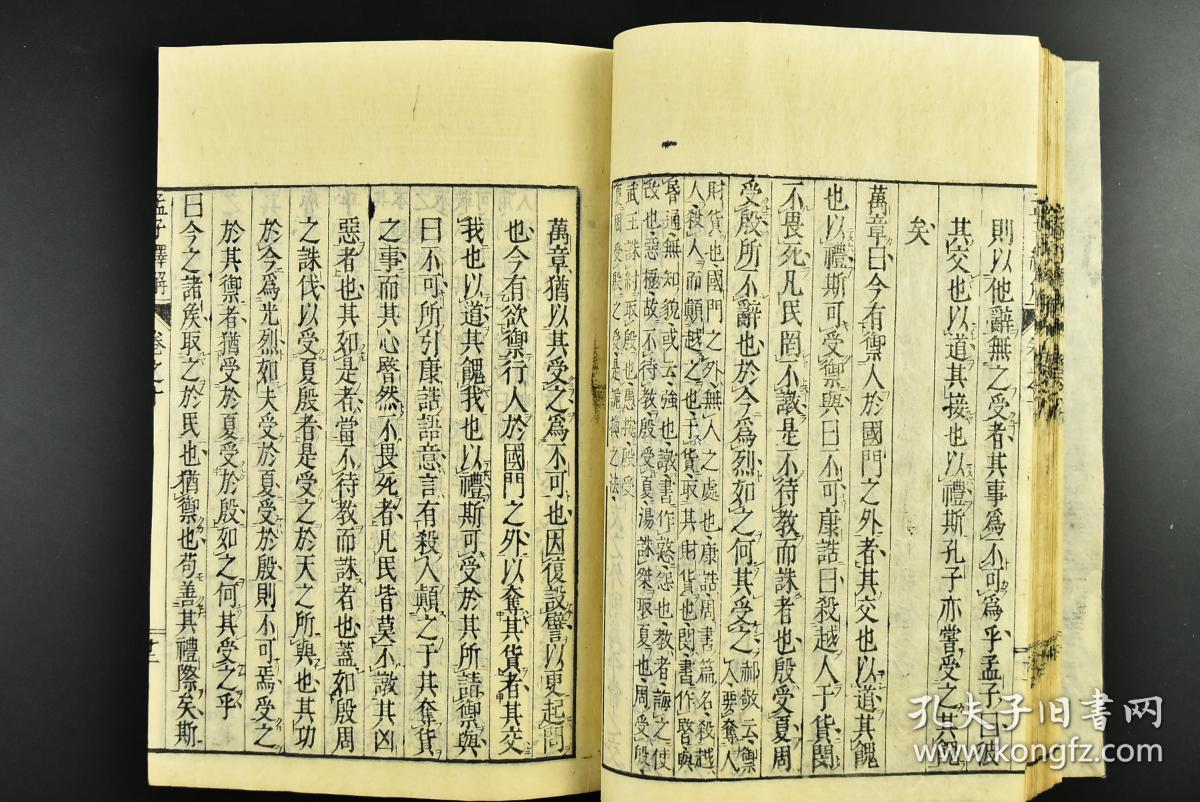 則以他辭無之受者其事爲不可爲乎孟子曰彼
其交也以道其接也以禮斯孔子亦嘗受之其餽
矣
萬章曰今有禦人於國門之外者其交也以道其餽
也以禮斯可受禦與曰不可康誥曰殺越人于貨閔
不畏死凡民罔不譈是不待教而誅者也殷受夏周
受殷所不辭也於今爲烈如之何其受之
郝敬云禦人要奪人
財貨也國門之外無人之處也康誥周書篇名殺越
人殺人而顛越之也于貨取其財貨也閔書作暋與
通無知貌或云強也譈書作憝怨也教者誨之使
改也惡極故不待教殷受夏湯誅桀取夏也周受殷
武王誅紂取殷也
萬章猶以其受之爲不可也因復設譬以更起問
也今有欲禦行人於國門之外以奪其貨者其交
我也以道其餽我也以禮斯可受於其所請禦與
曰不可所引康誥語意言有殺人顛之于其奪貨
之事而其心暋然不畏死者凡民皆莫不譈其凶
惡者也其如是者當不待教而誅者也蓋如殷周
之誅伐以受夏殷者是受之於天之所與也其功
於今爲光烈如夫受於夏受於殷則不可焉受之
於其禦者猶受於夏受於殷如之何其受之乎
曰今之諸侯取之於民也猶禦也苟善其禮際矣斯
孟子繹解
卷之十
孔夫子旧书网
www.kongfz.com